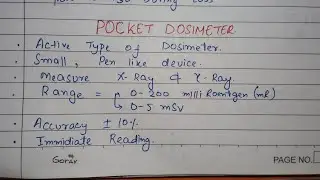 POCKET DOSIMETER
• Active Type of Dosimeter.
• Small, Pen like device.
• Measure X-Ray & γ-Ray.
• Range = 0-200 milli Roentgen (mR)
↳ 0-5 mSv
• Accuracy ± 10%.
• Immidiate Reading.
GOPAK
PAGE NO.